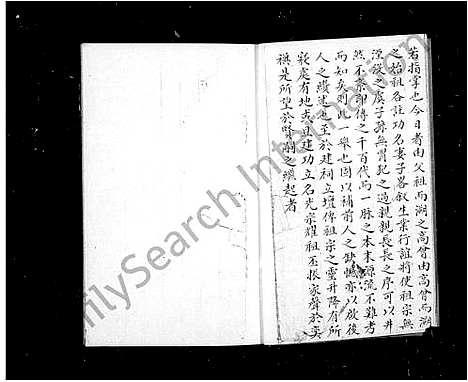 若指掌也今日者由父祖而溯之高曾由高曾而溯
之始祖各註功名妻子畧叙生業行誼將使祖宗無
湮沒之虞子孫無冒犯之過親親長長之序可以井
然不紊即傳之千百代而一脉之本末源流不難考
而知矣則此一舉也固以補前人之缺憾亦以啟後
人之續述也至於建祠立壇俾祖宗之靈升降有所
寢處有地與且建功立名光宗耀祖丕振家聲於奕
禩是所望於賢嗣之繼起者
FamilySearch International